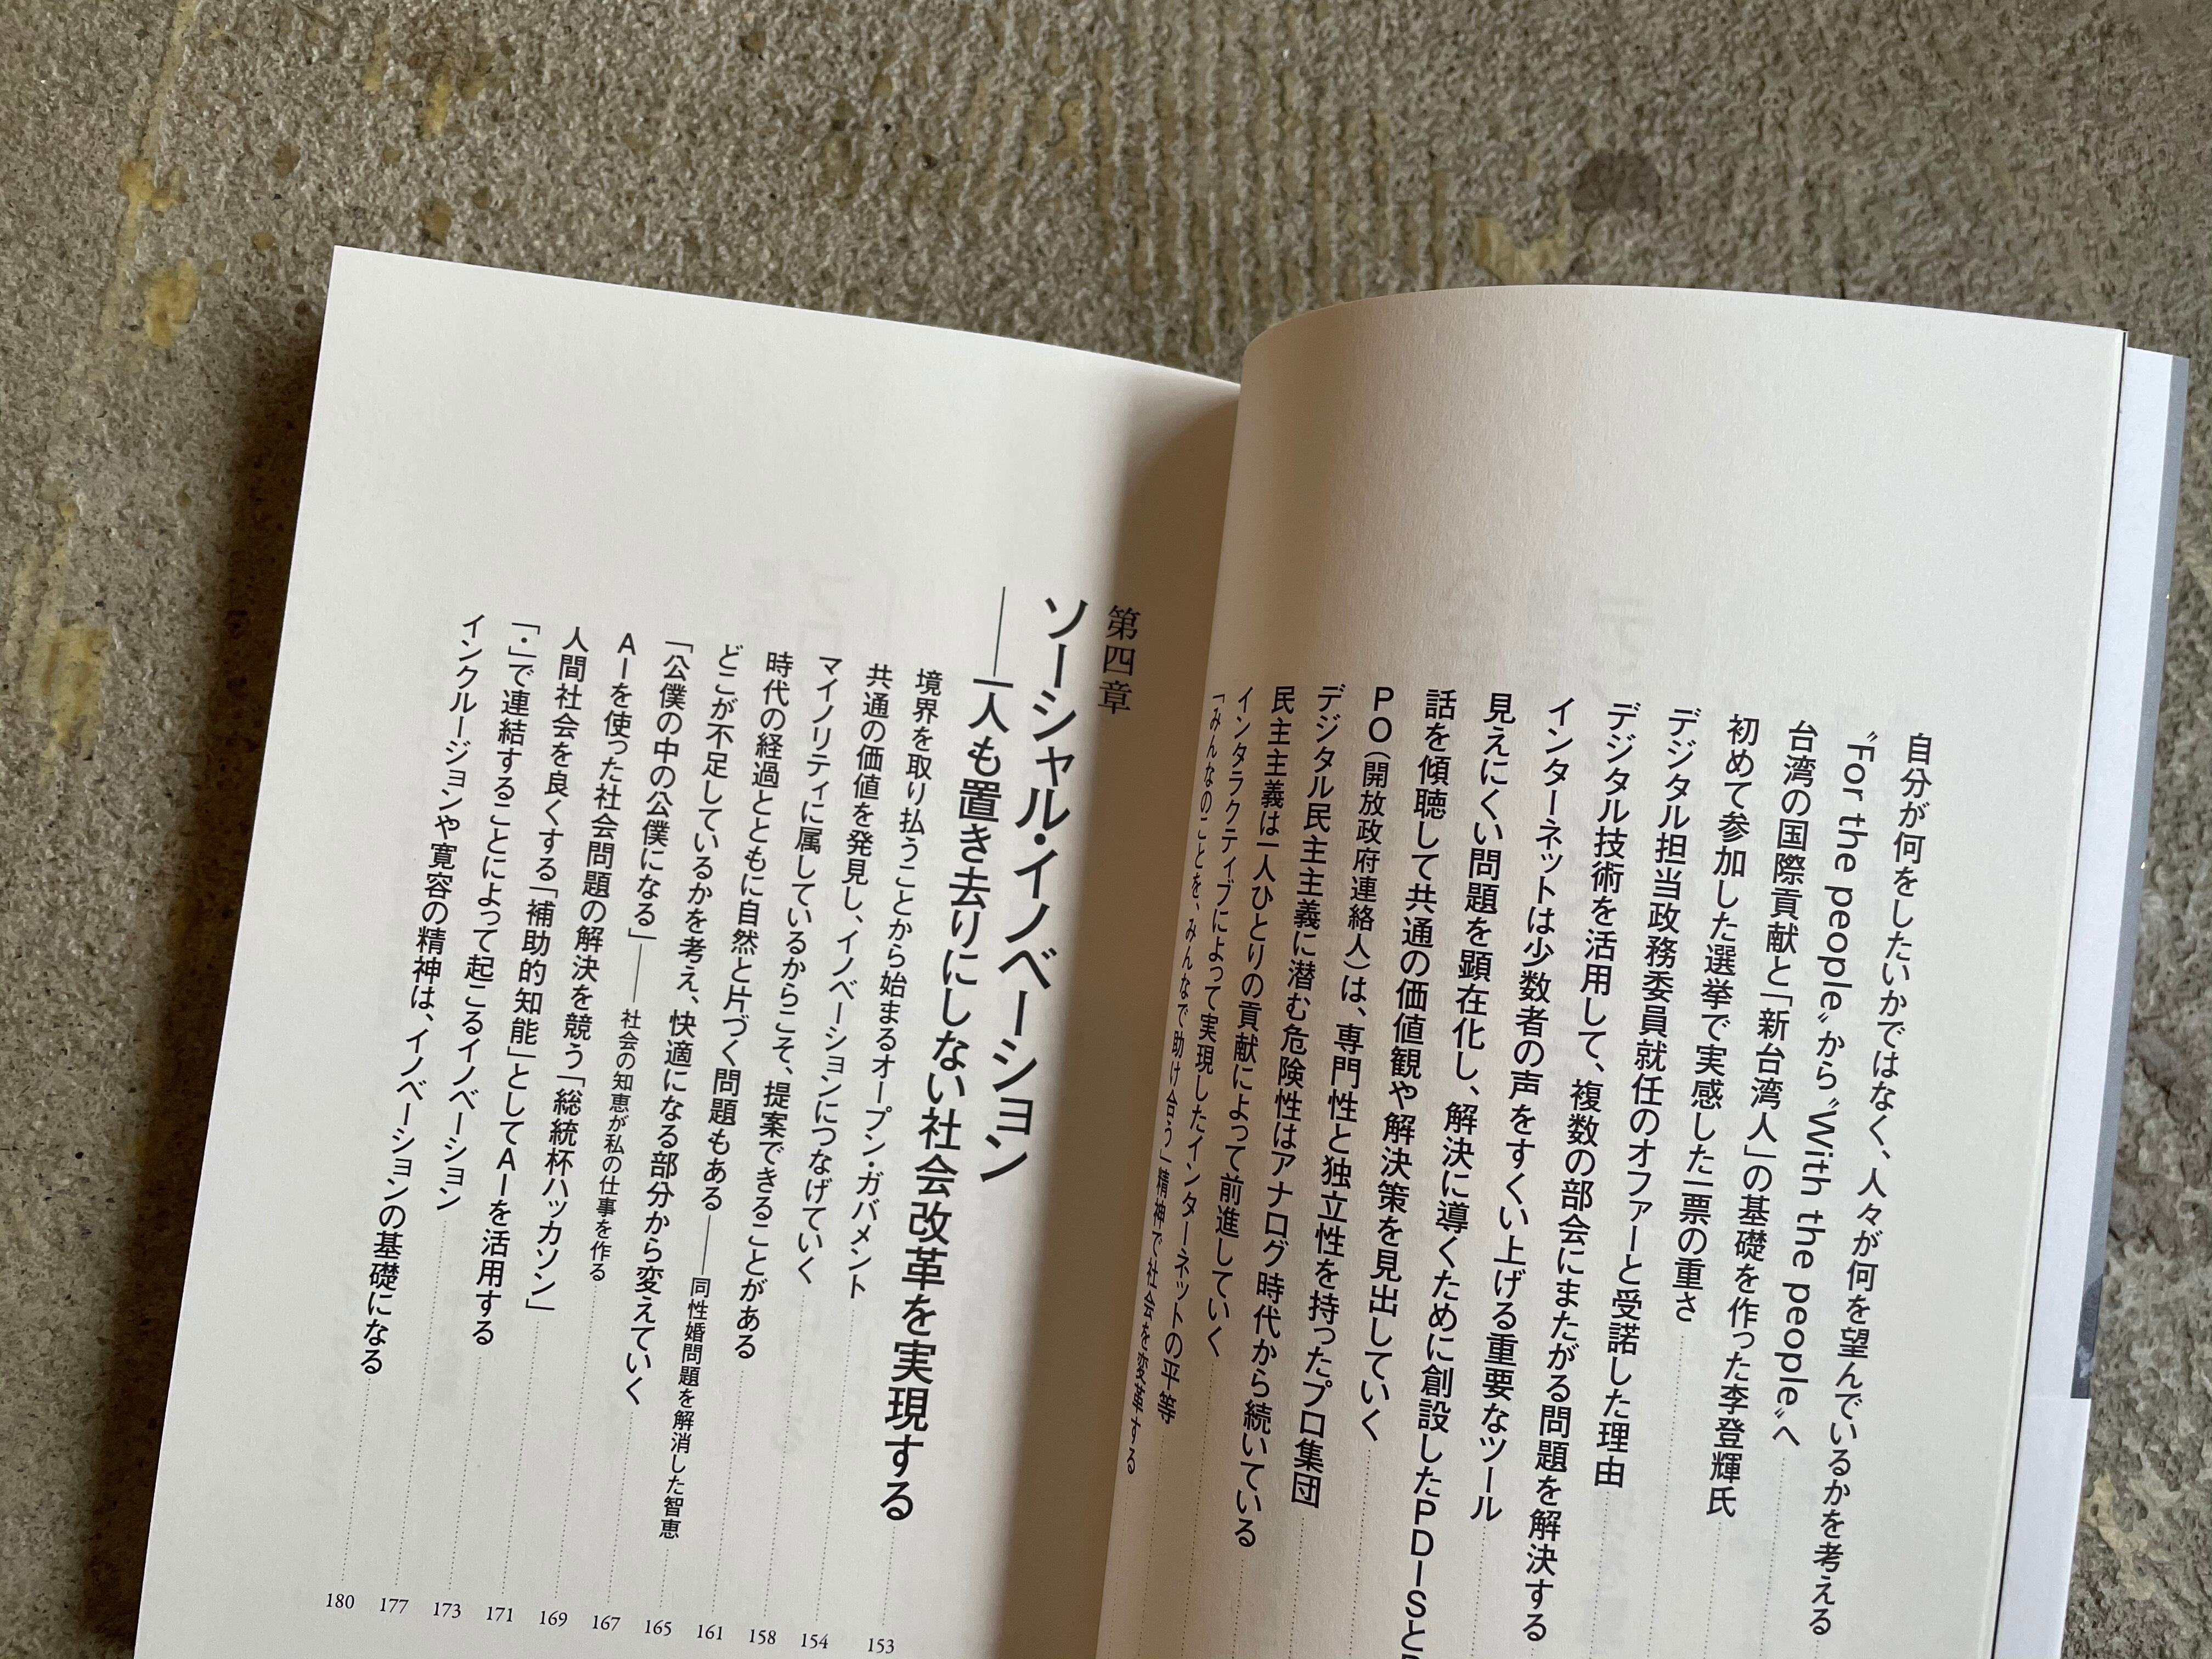 自分が何をしたいかではなく、人々が何を望んでいるかを考える
〝For the people〟から〝With the people〟へ
台湾の国際貢献と「新台湾人」の基礎を作った李登輝氏
初めて参加した選挙で実感した一票の重さ
デジタル担当政務委員就任のオファーと受諾した理由
デジタル技術を活用して、複数の部会にまたがる問題を解決する
インターネットは少数者の声をすくい上げる重要なツール
見えにくい問題を顕在化し、解決に導くために創設したPDISとP
話を傾聴して共通の価値観や解決策を見出していく
PO（開放政府連絡人）は、専門性と独立性を持ったプロ集団
デジタル民主主義に潜む危険性はアナログ時代から続いている
民主主義は一人ひとりの貢献によって前進していく
インタラクティブによって実現したインターネットの平等
「みんなのことを、みんなで助け合う」精神で社会を変革する
第四章
ソーシャル・イノベーション
――一人も置き去りにしない社会改革を実現する 153
境界を取り払うことから始まるオープン・ガバメント 154
共通の価値を発見し、イノベーションにつなげていく 158
マイノリティに属しているからこそ、提案できることがある 161
時代の経過とともに自然と片づく問題もある――同性婚問題を解消した智恵 165
どこが不足しているかを考え、快適になる部分から変えていく 167
「公僕の中の公僕になる」――社会の知恵が私の仕事を作る 169
AIを使った社会問題の解決を競う「総統杯ハッカソン」 171
人間社会を良くする「補助的知能」としてAIを活用する 173
「・」で連結することによって起こるイノベーション 177
インクルージョンや寛容の精神は、イノベーションの基礎になる 180